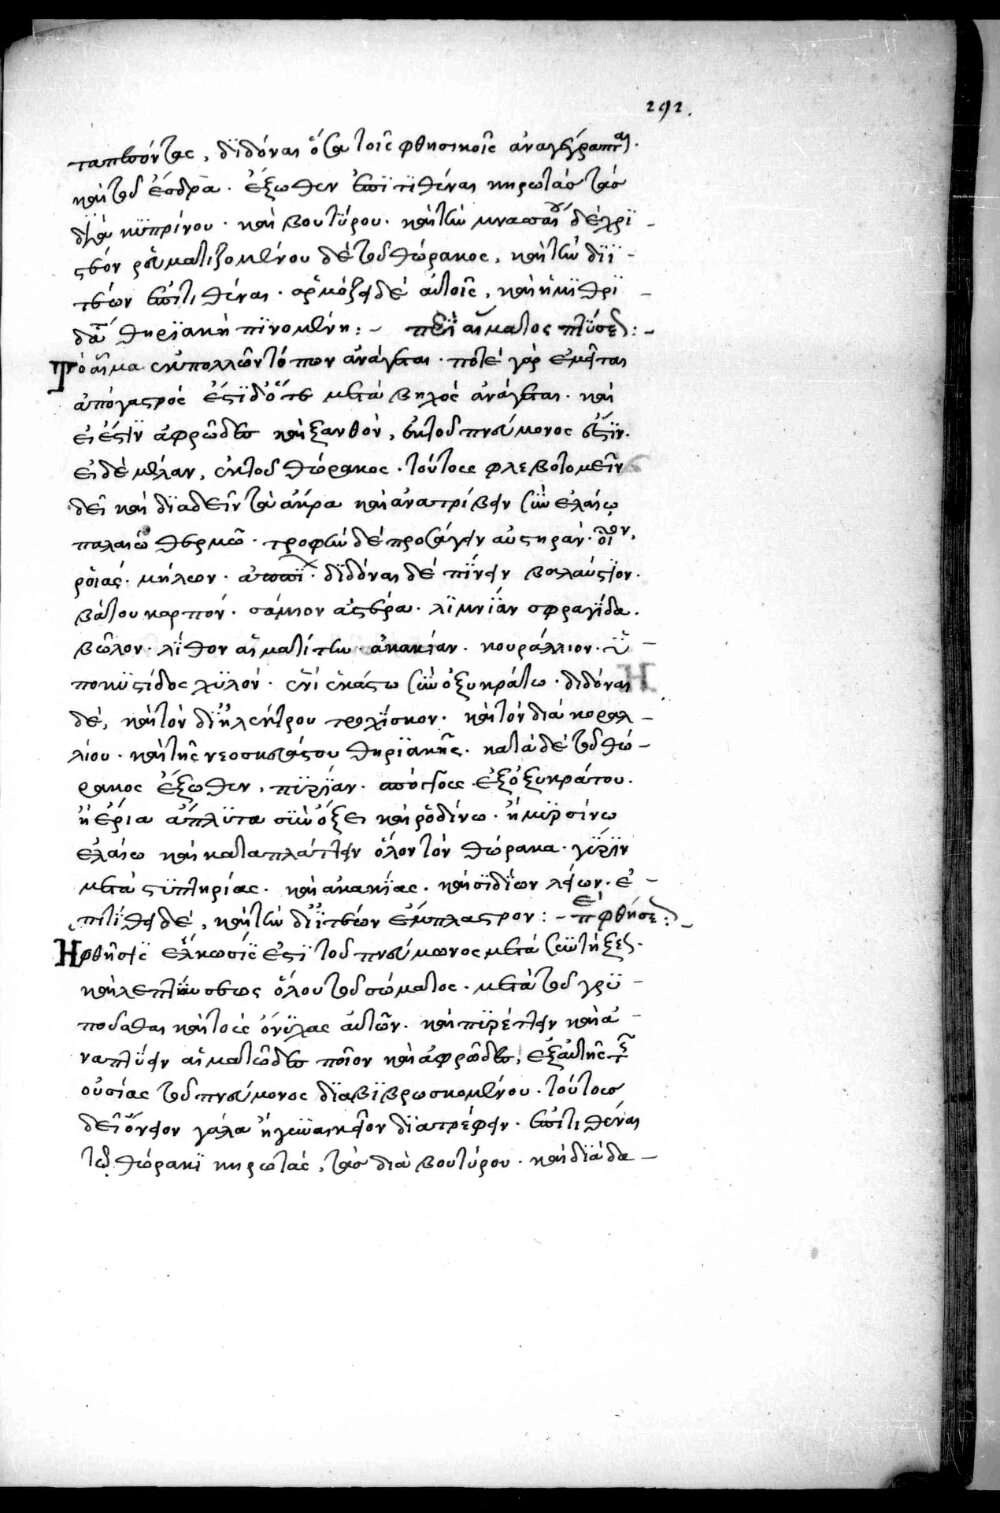 292.
ταπεσόντας, διδόναι ὅσα τοῖς φθησικοῖς ἀναγέγραπται.
καὶ τοῦ ἔσδρα. ἔξωθεν ἐπιτιθέναι κηρωτὰς τὰς
διὰ κυπρίνου. καὶ βουτύρου. καὶ τὴν μνασαίου δέχρι
στὸν ῥευματιζομένου δὲ τοῦ θώρακος, καὶ τὴν δι ἰ-
τεῶν ἐπιτιθέναι. ἁρμόζει δὲ αὐτοῖς, καὶ ἡ μιθρι-
δατ θηριακὴ πινομένη:- περὶ αἵματος πτύσεως:-
Τὸ αἷμα ἐκ πολλῶν τόπων ἀνάγεται. ποτὲ γὰρ ἐμεῖται
ἀπὸ γαστρός ἔστι δ' ὅτε μετὰ βηχὸς ἀνάγεται. καὶ
εἰ ἔστιν ἀφρῶδες καὶ ξανθὸν, ἐκ τοῦ πνεύμονος ἐστὶν.
εἰ δὲ μέλαν, ἐκ τοῦ θώρακος. τούτοις φλεβοτομεῖν
δεῖ καὶ διαδεῖν τὰ ἄκρα καὶ ἀνατρίβειν σὺν ἐλαίῳ
παλαιῶ θερμῶ. τροφὴν δὲ προσάγειν αὐστηράν. οἷον,
ῥοιάς. μήλων. ἀπίοι. διδόναι δὲ πίνειν βαλαύστιον.
βάτου καρπόν. σάμιον ἀστέρα. λιμνίαν σφραγίδα.
βῶλον. λίθον αἱματίτην. ἀκακίαν. κουράλλιον. ὑ-
ποκυστίδος χυλόν. ἑνὶ ἑκάστω σὺν ὀξυκράτω. διδόναι
δὲ, καὶ τὸν δι ἠλέκτρου τροχίσκον. καὶ τὸν διὰ κοραλ-
λίου. καὶ τῆς νεοσκευάστου θηριακῆς. κατὰ δὲ τοῦ θώ-
ρακος ἔξωθεν, πυριᾶν. σπόγγοις ἐξ ὀξυκράτου.
ἢ ἔρια ἄπλυτα σὺν ὄξει καὶ ῥοδίνω. ἢ μυρσίνω
ἐλαίω καὶ καταπλάττειν ὅλον τὸν θώρακα. γύριν
μετὰ στυπτηρίας. καὶ ἀκακίας. καὶ σιδίων λείων. ἐ-
πιτίθει δὲ, καὶ τὴν δι ἰτεῶν ἔμπλαστρον:- περὶ φθήσεως:-
Ἡ φθῆσις ἕλκωσις ἐστὶ τοῦ πνεύμωνος μετὰ συντήξεως.
καὶ λεπτύνσεως ὅλου τοῦ σώματος. μετὰ τοῦ γρυ-
ποῦσθαι καὶ τοὺς ὄνυχας αὐτῶν. καὶ πυρέττειν καὶ ἀ-
ναπτύειν αἱματῶδες ποῖον καὶ ἀφρῶδες, ἐξ αὐτῆς τῆς
οὐσίας τοῦ πνεύμονος διαβιβρωσκομένου. τούτοις
δεῖ ὄνειον γάλα ἢ γυναικεῖον διατρέφειν. ἐπιτιθέναι
τῷ θώρακι κηρωτάς, τὰς διὰ βουτύρου. καὶ διὰ δα-